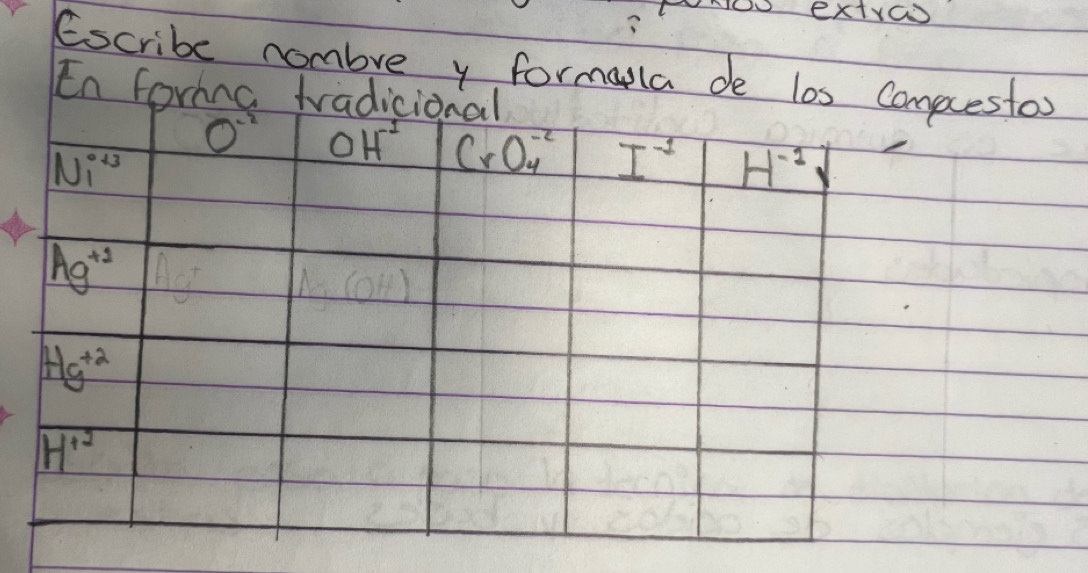 extras
Escribe nombre y formula de los compuestos
En forma tradicional
O⁻² OH⁻¹ CrO₄⁻² I⁻¹ H⁻¹
Ni⁺³
Ag⁺¹ Ag⁺ Ag(OH)
Hg⁺²
H⁺¹